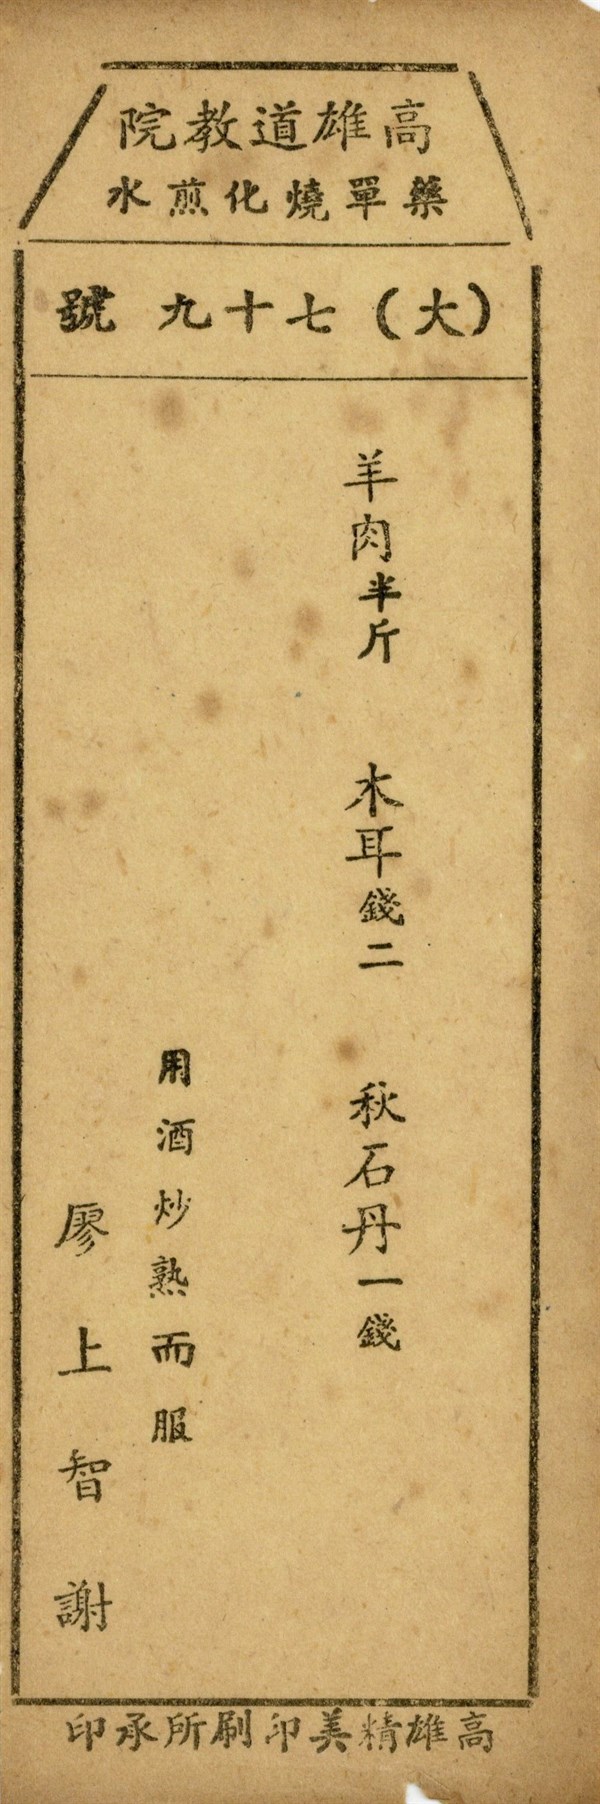 高雄道教院
藥單燒化煎水
(大)七十九號
羊肉半斤 木耳錢二 秋石丹一錢
用酒炒熟而服
廖上智謝
高雄精美印刷所承印